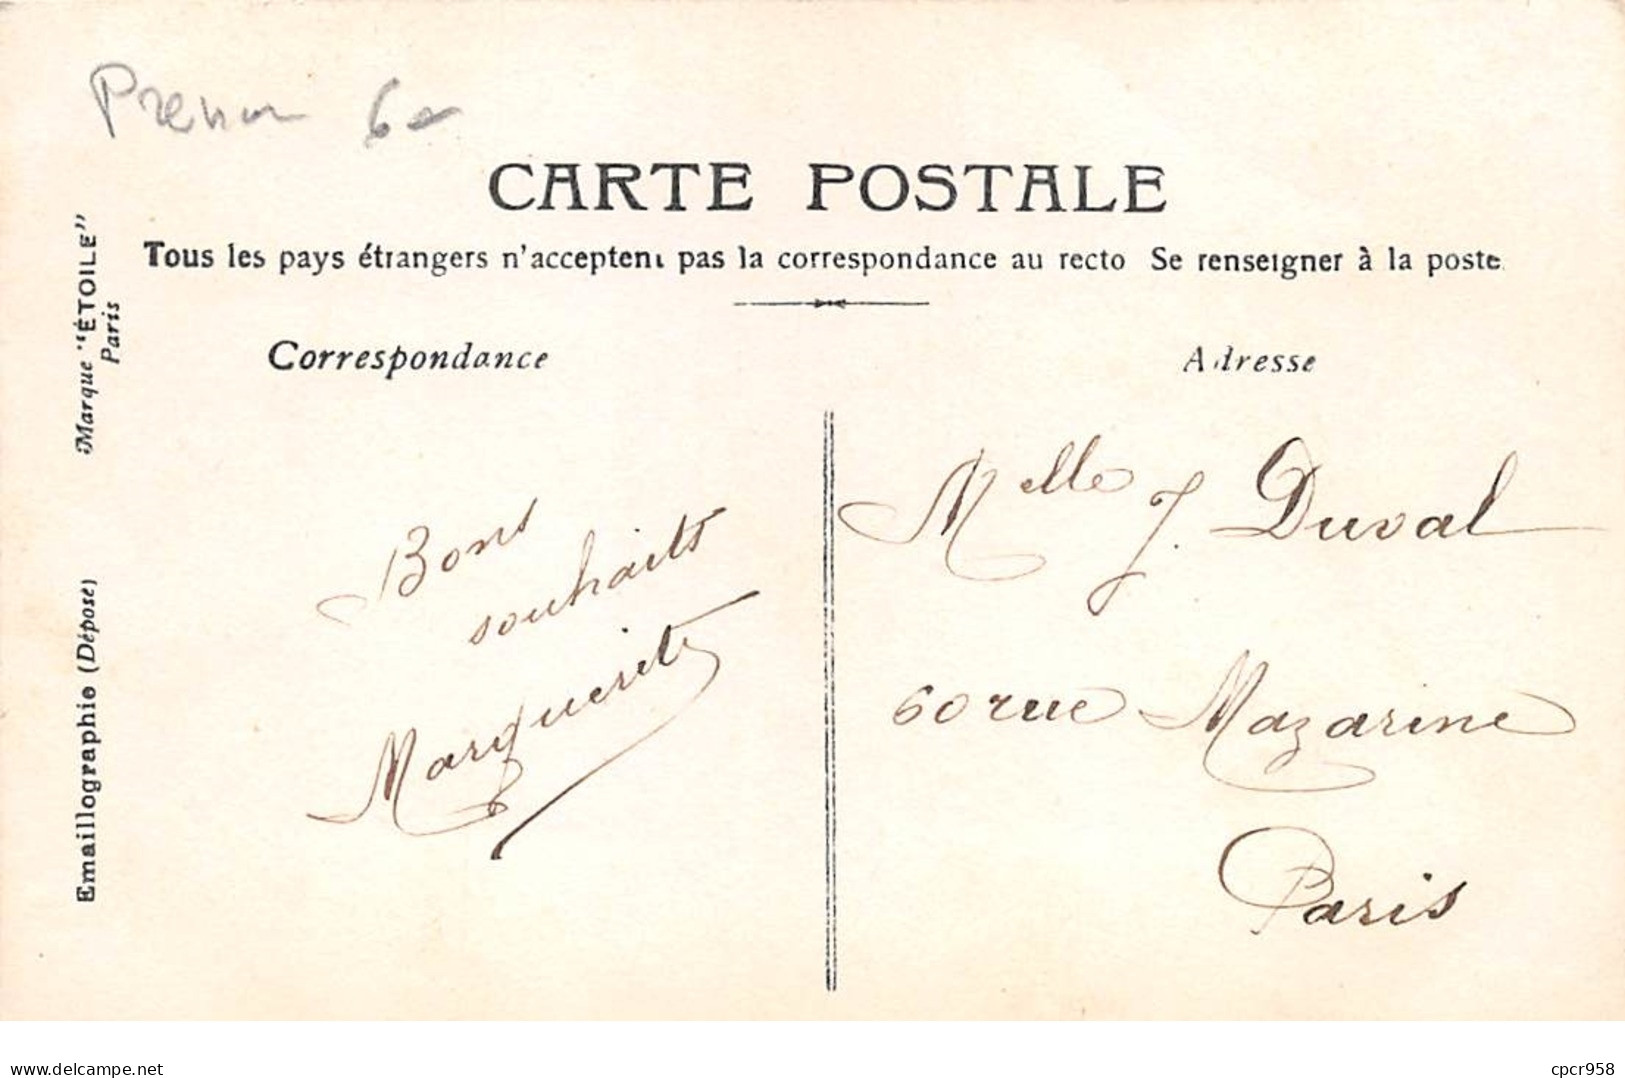 Prenom 6e
CARTE POSTALE
Tous les pays étrangers n'acceptent pas la correspondance au recto Se renseigner à la poste
Marque "ÉTOILE"
Paris
Emaillographie (Déposé)
Correspondance
Bons
souhaits
Marguerite
Adresse
Melle J. Duval
60 rue Mazarine
Paris
www.delcampe.net
cpcr958